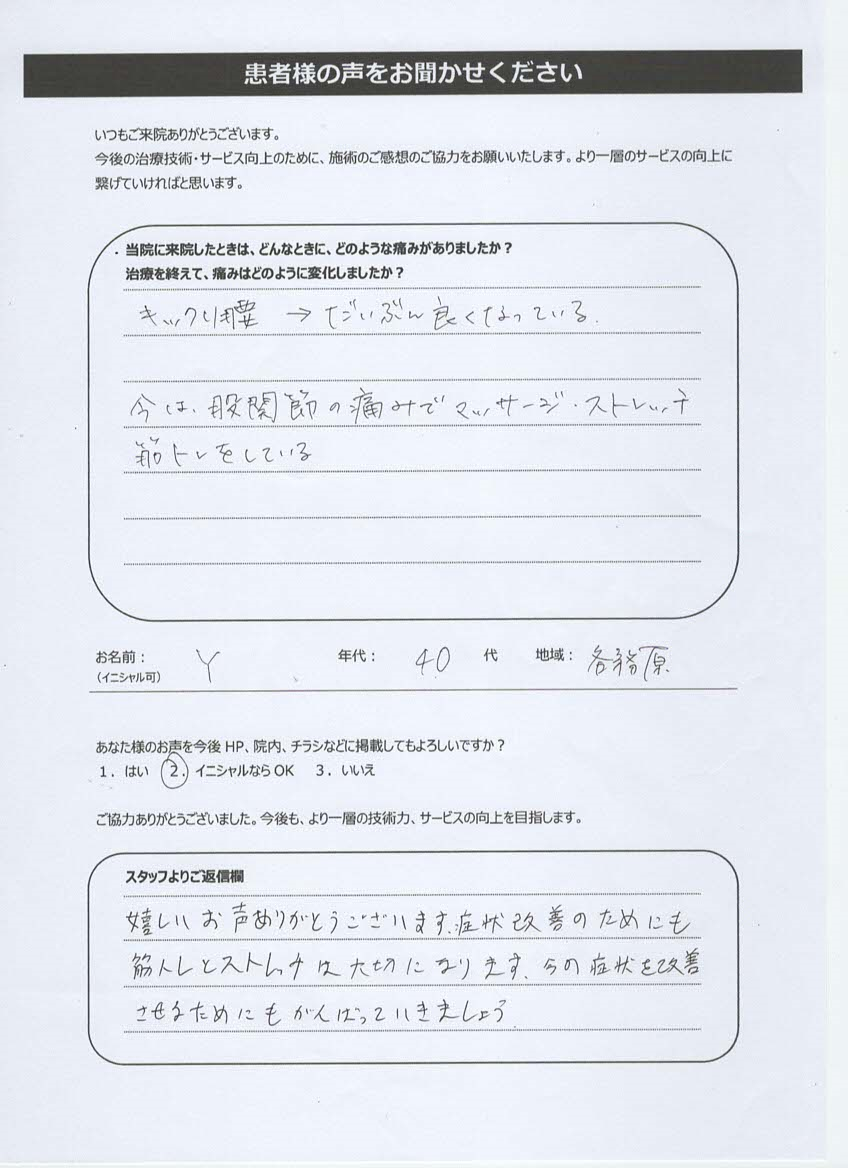 患者様の声をお聞かせください
いつもご来院ありがとうございます。
今後の治療技術・サービス向上のために、施術のご感想のご協力をお願いいたします。より一層のサービスの向上に
繋げていければと思います。
. 当院に来院したときは、どんなときに、どのような痛みがありましたか?
治療を終えて、痛みはどのように変化しましたか?
キックリ腰 → だいぶん良くなっている.
今は、股関節の痛みでマッサージ・ストレッチ
筋トレをしている
お名前: Y 年代: 40 代 地域: 各務原
(イニシャル可)
あなた様のお声を今後 HP、院内、チラシなどに掲載してもよろしいですか?
1. はい 2. イニシャルなら OK 3. いいえ
ご協力ありがとうございました。今後も、より一層の技術力、サービスの向上を目指します。
スタッフよりご返信欄
嬉しいお声ありがとうございます.症状改善のためにも
筋トレとストレッチは大切になります. 今の症状を改善
させるためにもがんばっていきましょう